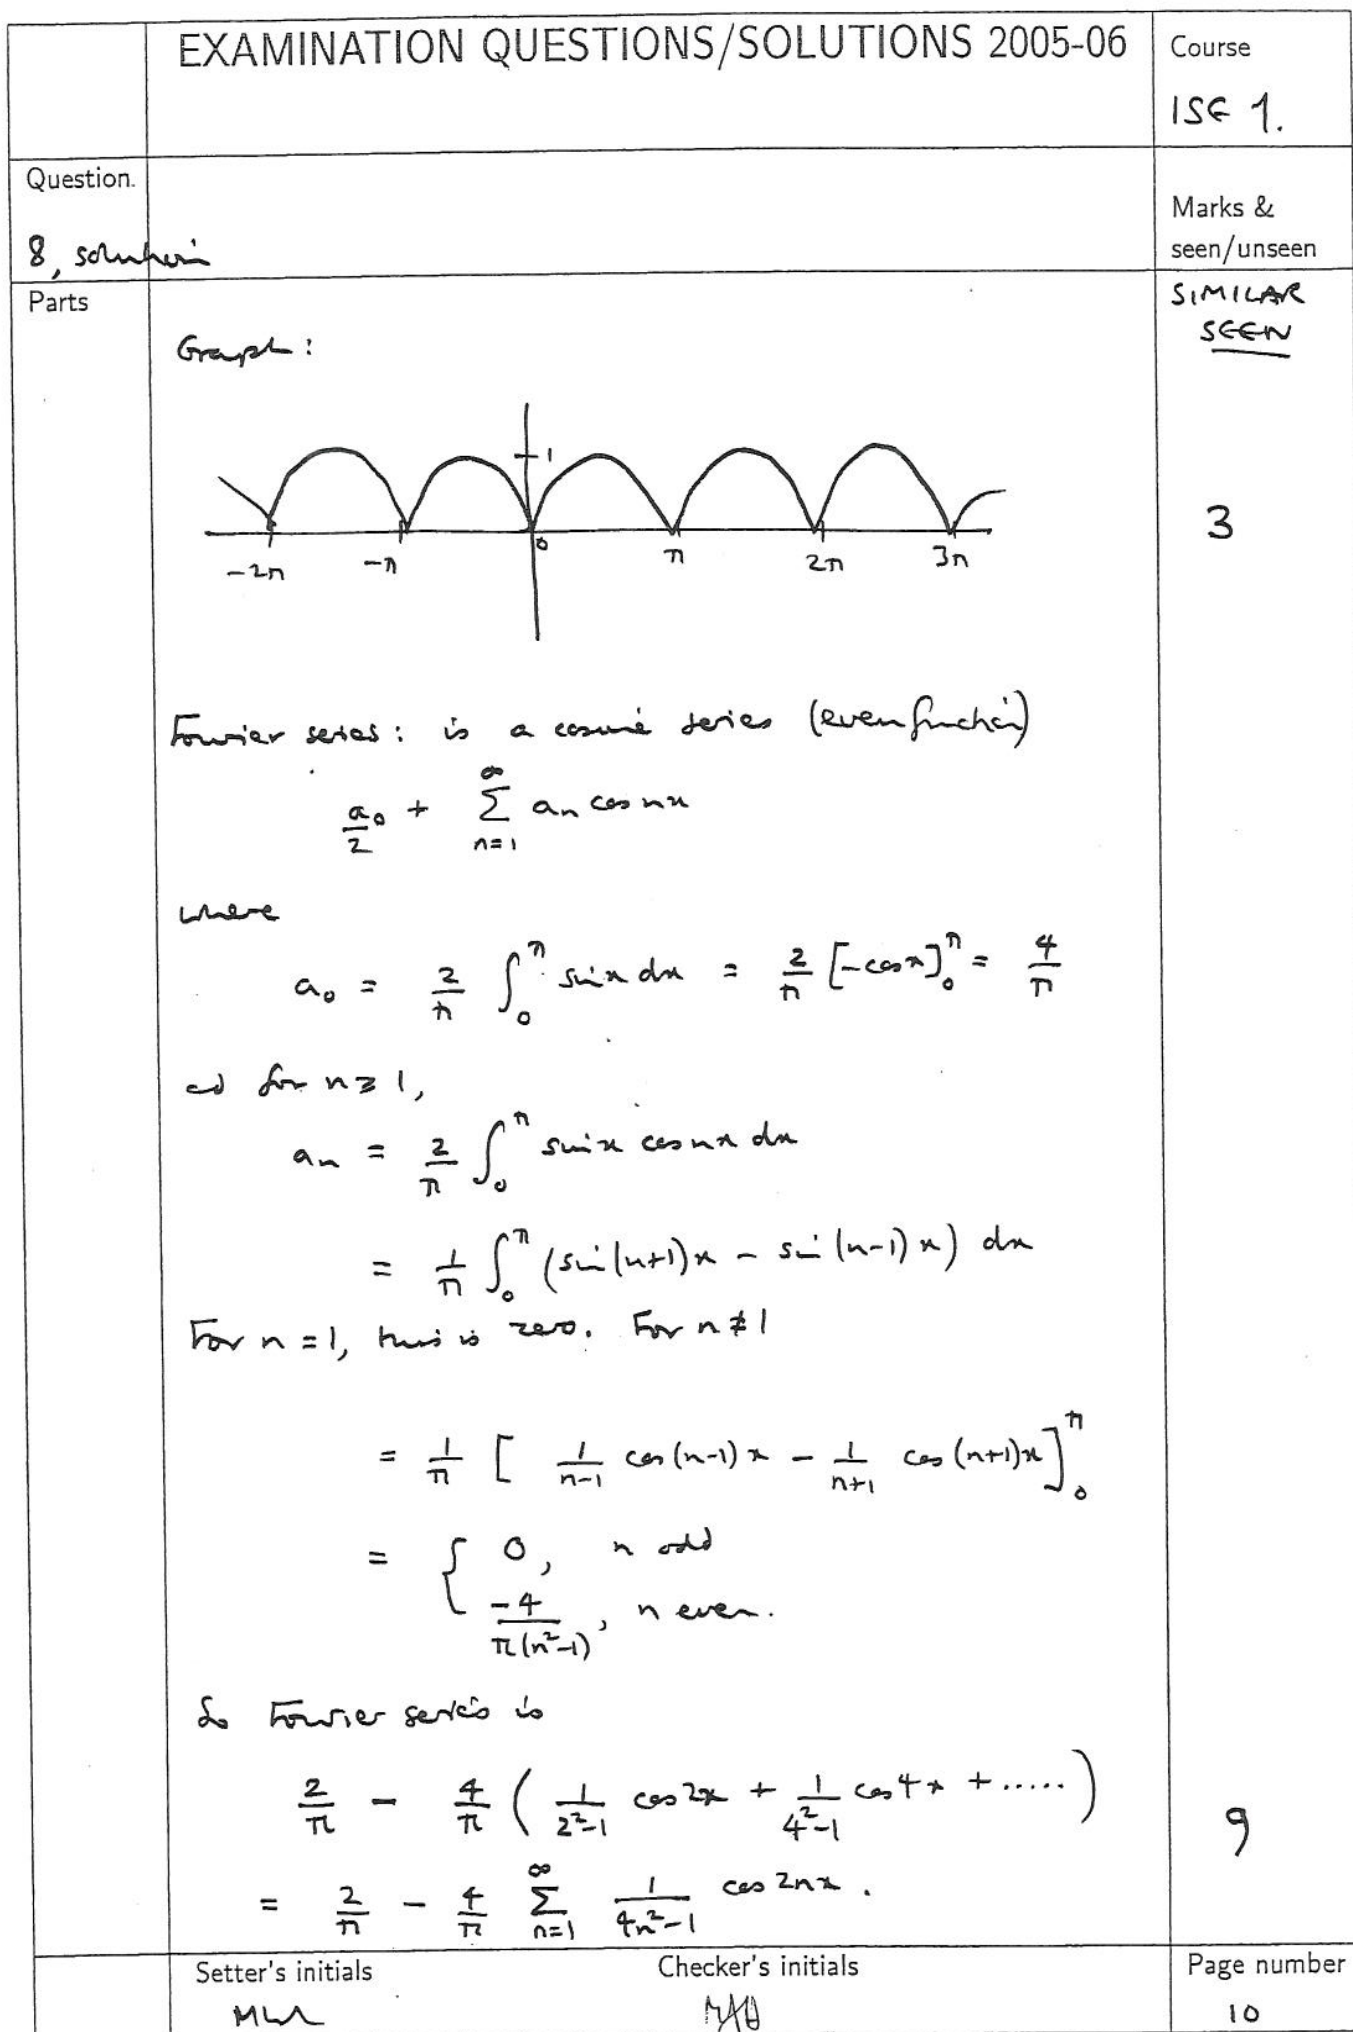 EXAMINATION QUESTIONS/SOLUTIONS 2005-06
Course
ISE 1.
Question.
8, solution
Marks &
seen/unseen
Parts
SIMILAR
SEEN
Graph:
1
-2π -π 0 π 2π 3π
3
Fourier series: is a cosine series (even function)
a₀/2 + ∑_{n=1}^{∞} aₙ cos nx
where
a₀ = 2/π ∫₀^π sin x dx = 2/π [-cos x]₀^π = 4/π
and for n ≥ 1,
aₙ = 2/π ∫₀^π sin x cos nx dx
= 1/π ∫₀^π (sin(n+1)x - sin(n-1)x) dx
For n = 1, this is zero. For n ≠ 1
= 1/π [ 1/(n-1) cos(n-1)x - 1/(n+1) cos(n+1)x ]₀^π
= { 0, n odd
-4/(π(n²-1)), n even.
So Fourier series is
2/π - 4/π ( 1/(2²-1) cos 2x + 1/(4²-1) cos 4x + ..... )
9
= 2/π - 4/π ∑_{n=1}^{∞} 1/(4n²-1) cos 2nx.
Setter's initials
Checker's initials
Page number
10